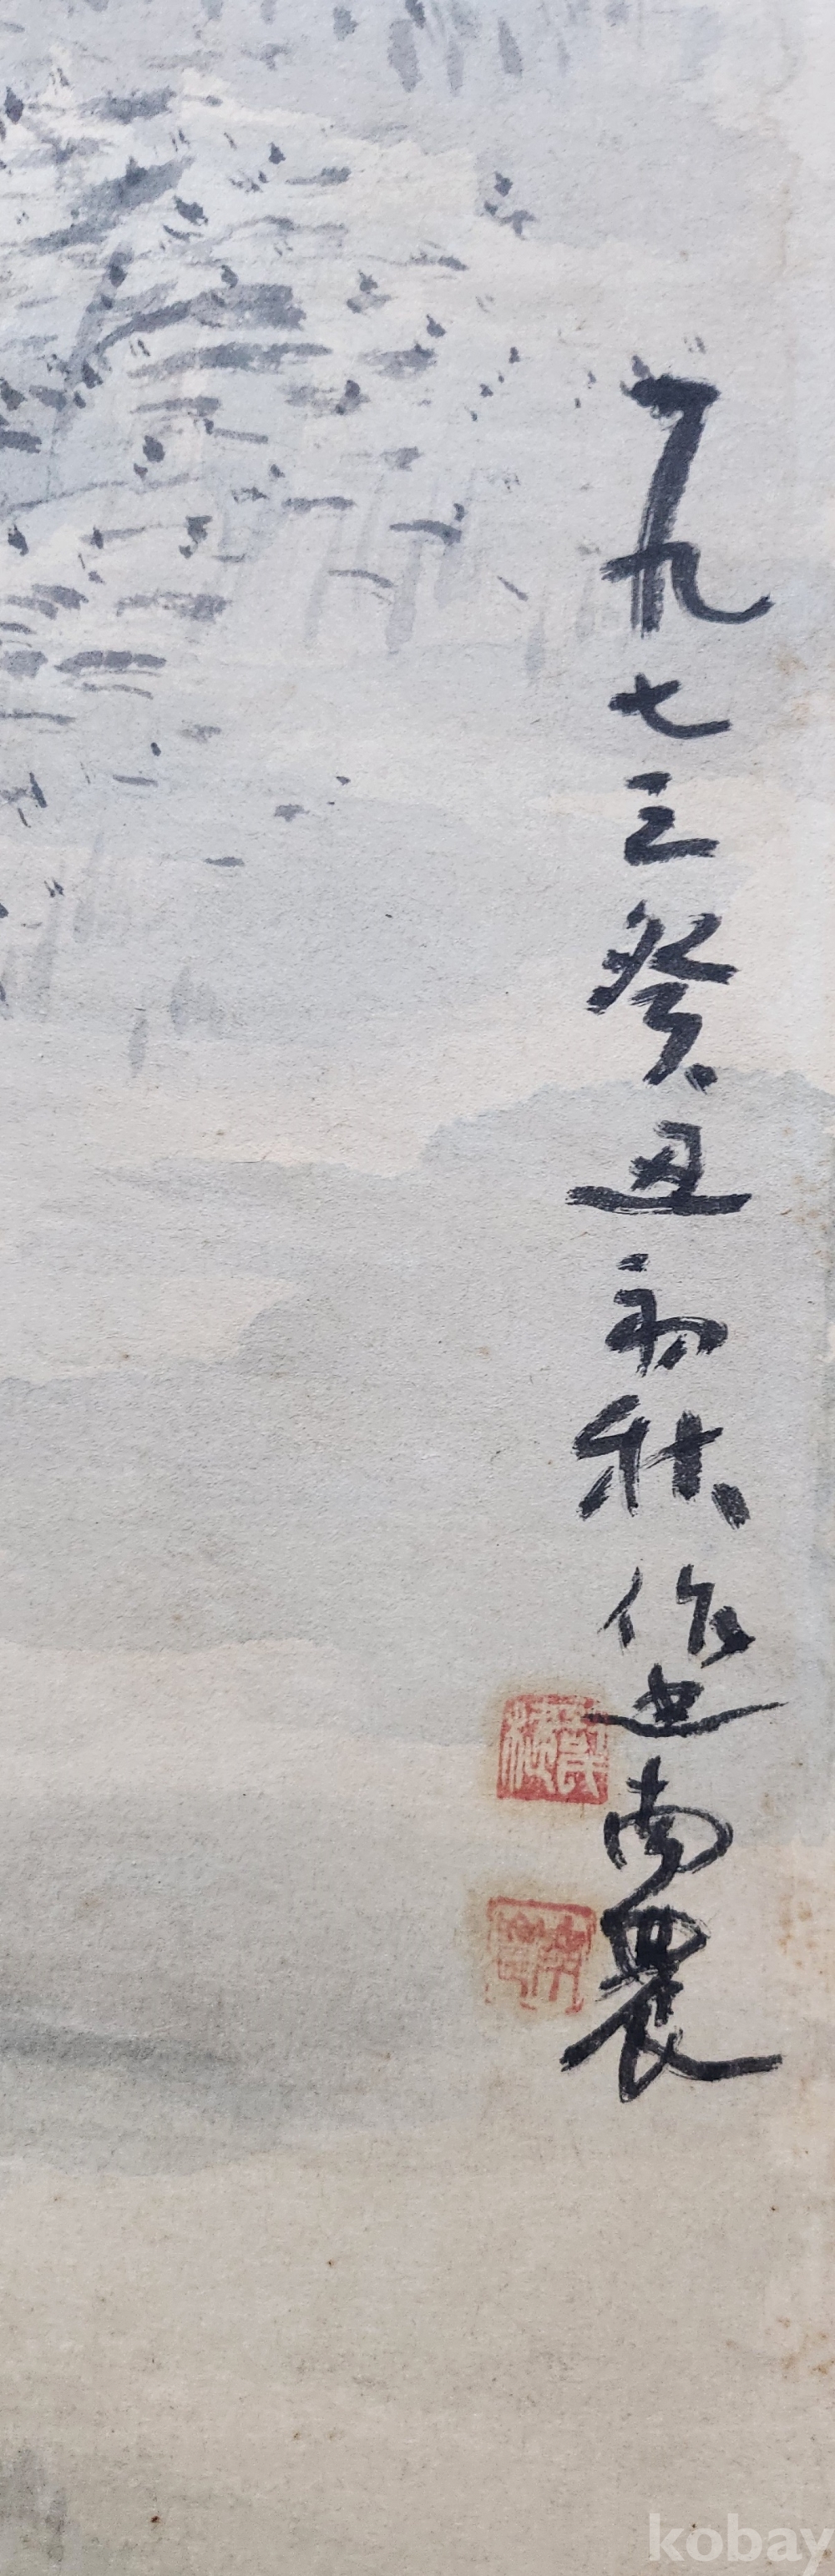 一九七三癸丑初秋作也南農
kobay